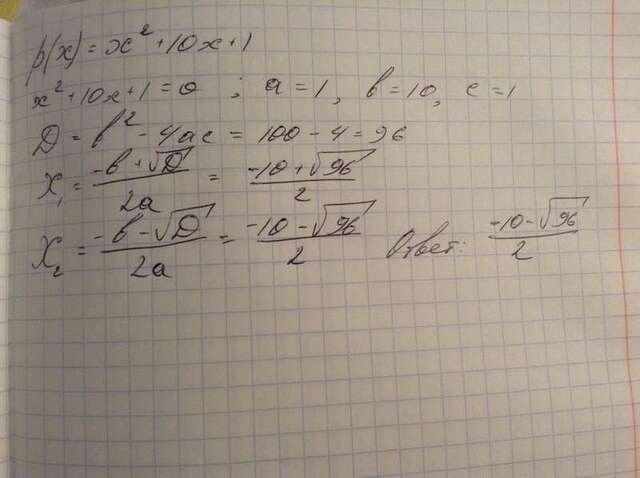 p(x) = x² + 10x + 1
x² + 10x + 1 = 0 ; a = 1, b = 10, c = 1
D = b² - 4ac = 100 - 4 = 96
X₁ = (-b + √D)/2a = (-10 + √96)/2
X₂ = (-b - √D)/2a = (-10 - √96)/2 Ответ: (-10 - √96)/2